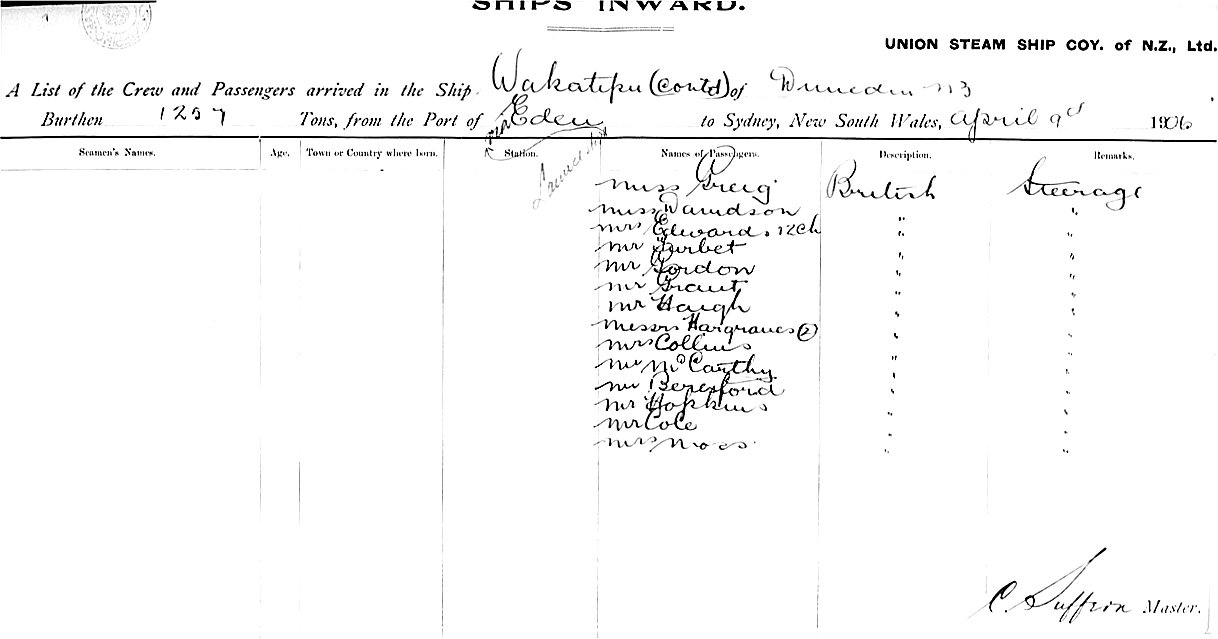 SHIPS INWARD.
UNION STEAM SHIP COY. of N.Z., Ltd.
A List of the Crew and Passengers arrived in the Ship Wakatipu (Contd) of Dunedin NZ
Burthen 1257 Tons, from the Port of via Eden to Sydney, New South Wales, April 9th 1906
Launceston
Seamen's Names. Age. Town or Country where born. Station. Names of Passengers. Description. Remarks.
Miss Greig British Steerage
Miss Davidson " "
Mrs Edwards 12Ch " "
Mr Furbet " "
Mr Gordon " "
Mr Grant " "
Mr Haigh " "
Messrs Hargraves (2) " "
Mrs Collins " "
Mr McCarthy " "
Mr Beresford " "
Mr Hopkins " "
Mr Cole " "
Mrs Moss " "
C. Suffern Master.